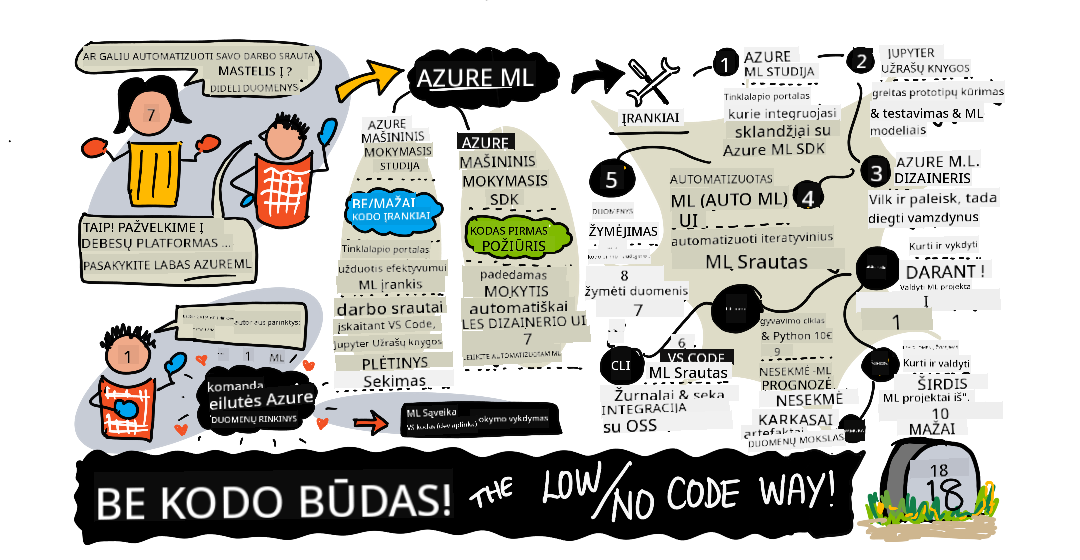 AR GALIU AUTOMATIZUOTI SAVO DARBO SRAUTĄ
MASTELIS Į ?
DIDELI DUOMENYS
7
TAIP! PAŽVELKIME Į
DEBESŲ PLATFORMAS ...
PASAKYKITE LABAS AZUREML
autoriaus parinktys:
1 ML
1
komanda
eilutės Azure
DUOMENŲ RINKINYS
AZURE ML
AZURE
MAŠININIS
MOKYMASIS
STUDIJA
BE/MAŽAI
KODO ĮRANKIAI
Tinklalapio portalas
užduotis efektyvumui
ML įrankis
darbo srautai
įskaitant VS Code,
Jupyter Užrašų knygos
PLĖTINYS
Sekimas
AZURE
MAŠININIS
MOKYMASIS
SDK
KODAS PIRMAS
POŽIŪRIS
padedamas
MOKYTIS
automatiškai
LES DIZAINERIO UI
7
ML Sąveika
VS kodas (dev aplinka) okymo vykdymas
ĮRANKIAI
1
AZURE
ML STUDIJA
Tinklalapio portalas
kurie integruojasi
sklandžiai su
Azure ML SDK
2
JUPYTER
UŽRAŠŲ KNYGOS
greitas prototipų kūrimas
& testavimas & ML
modeliais
3
AZURE M.L.
DIZAINERIS
Vilk ir paleisk, tada
diegti vamzdynus
AUTOMATIZUOTAS
ML (AUTO ML) 4
UI
automatizuoti iteratyvinius
ML Srautas
5
DUOMENYS
ŽYMĖJIMAS
8
žymėti duomenis
7
CLI
6
VS CODE
ML Srautas
Žurnalai & seka
INTEGRACIJA
su OSS
gyvavimo ciklas
& Python 10€
9
NESĖKMĖ -ML
PROGNOZĖ
NESĖKMĖ
KARKASAI
artefaktai
DUOMENŲ MOKSLAS
Kurti ir vykdyti
DARANT !
Valdyti ML projektą
I
1
Kurti ir valdyti
ŠIRDIS
ML projektai iš".
10
MAŽAI
BE KODO BŪDAS! THE LOW/NO CODE WAY!
18
18